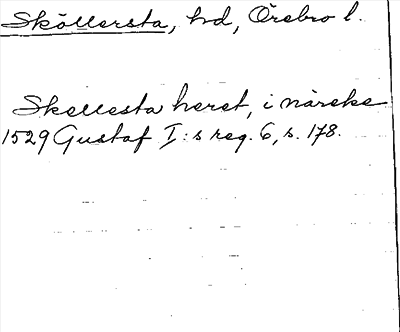 Sköllersta, hd, Örebro l.
Skellesta heret, i närcke
1529 Gustaf I:s reg. 6, s. 178.